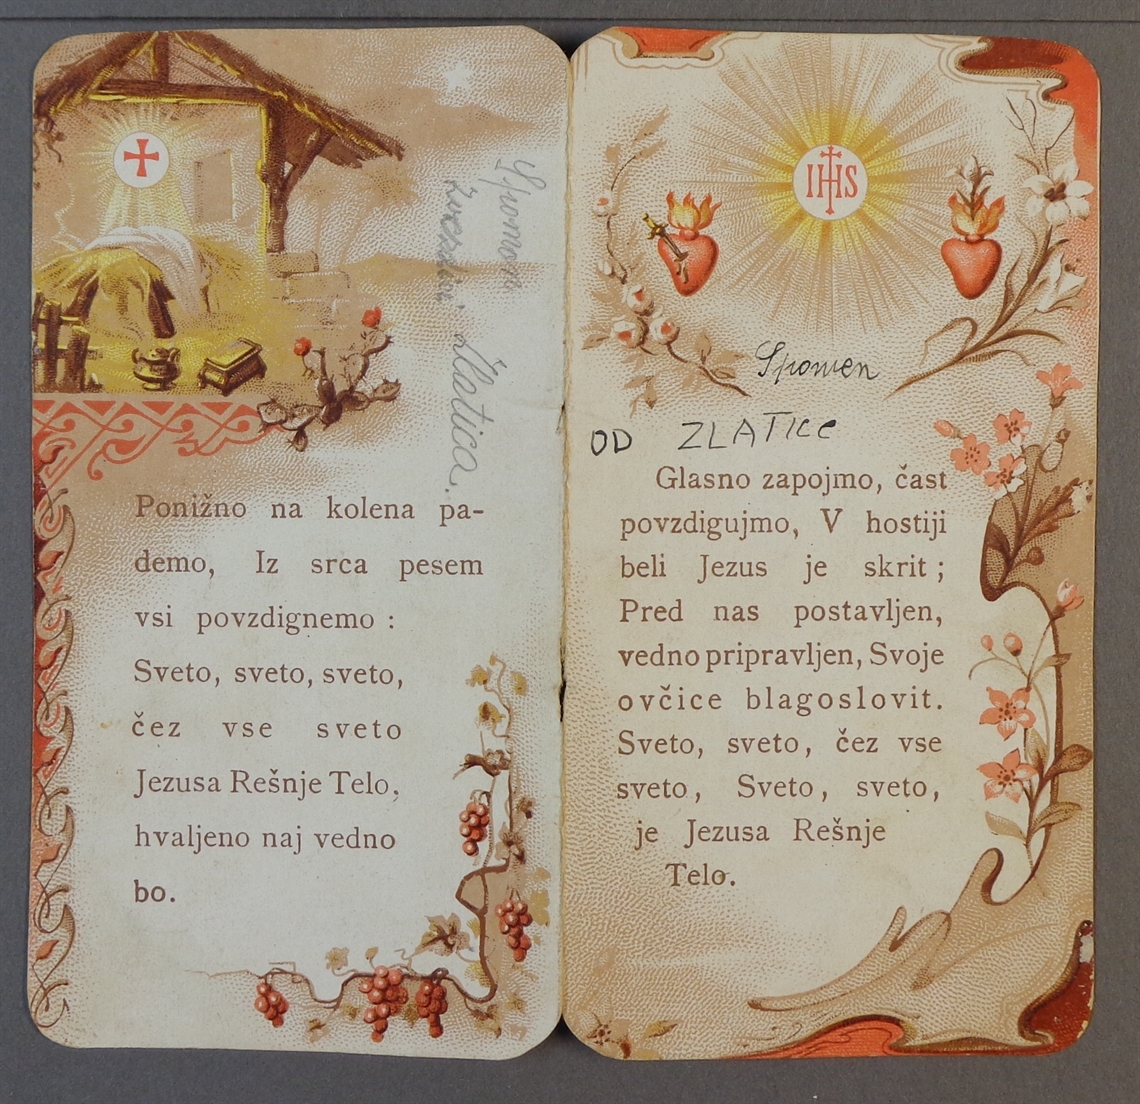 Spomen
Zlatica.
Ponižno na kolena pa-
demo, Iz srca pesem
vsi povzdignemo :
Sveto, sveto, sveto,
čez vse sveto
Jezusa Rešnje Telo,
hvaljeno naj vedno
bo.
IHS
Spomen
OD ZLATICe
Glasno zapojmo, čast
povzdigujmo, V hostiji
beli Jezus je skrit ;
Pred nas postavljen,
vedno pripravljen, Svoje
ovčice blagoslovit.
Sveto, sveto, čez vse
sveto, Sveto, sveto,
je Jezusa Rešnje
Telo.